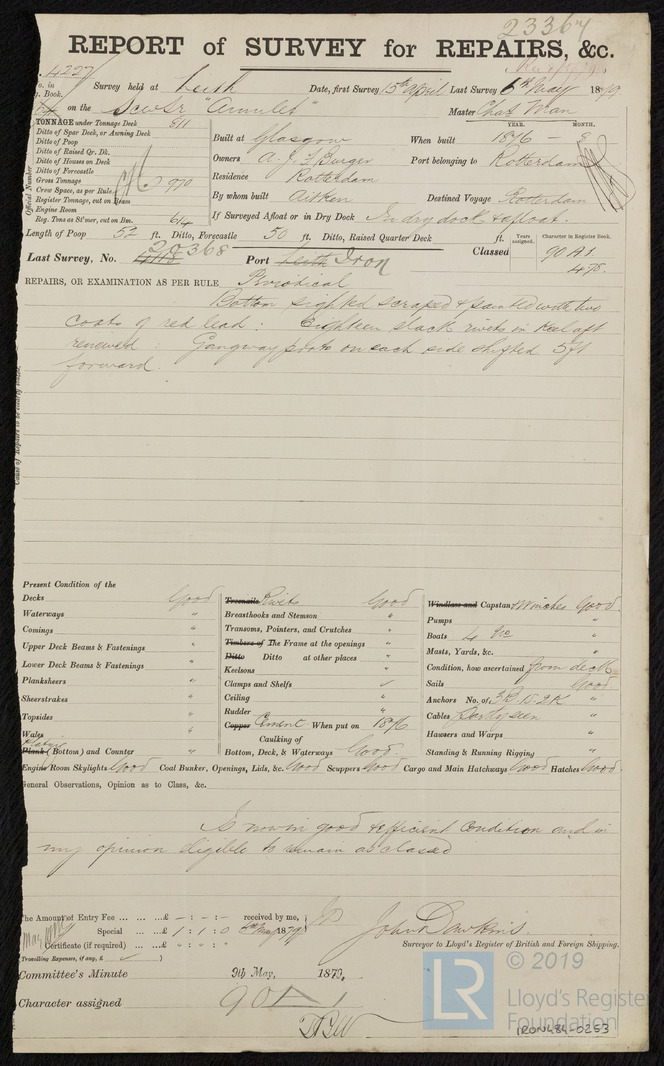 23367
REPORT of SURVEY for REPAIRS, &c.
Survey held at Leith Date, first Survey 15th April Last Survey 6th May 1879
on the ScwSr "Amulet" Master Chas Man
TONNAGE under Tonnage Deck 811
Ditto of Spar Deck, or Awning Deck
Ditto of Poop
Ditto of Raised Qr. Dk.
Ditto of Houses on Deck
Ditto of Forecastle
Gross Tonnage 970
Crew Space, as per Rule
Register Tonnage, cut on Beam
Engine Room
Reg. Tons as St'mer, cut on Bm. 614
Official Number
Built at Glasgow When built YEAR. 1876 MONTH. 8
Owners A. J. F. Burger Port belonging to Rotterdam
Residence Rotterdam
By whom built Aitken Destined Voyage Rotterdam
If Surveyed Afloat or in Dry Dock In dry dock & afloat.
Length of Poop 52 ft. Ditto, Forecastle 50 ft. Ditto, Raised Quarter Deck ft.
Years assigned. Character in Register Book.
Last Survey, No. 20368 Port Leith Iron Classed 90 A1
4,78.
REPAIRS, OR EXAMINATION AS PER RULE Periodical
Bottom sighted scraped & painted with two
coats of red lead: Eighteen slack rivets in keel aft
renewed: Gangway ports on each side shifted 5 ft
forward.
Cause of Repairs to be clearly stated.
Present Condition of the
Decks Good
Waterways "
Comings "
Upper Deck Beams & Fastenings "
Lower Deck Beams & Fastenings "
Planksheers "
Sheerstrakes "
Topsides "
Wales "
Plank (Bottom) and Counter "
Treenails Rivets Good
Breasthooks and Stemson "
Transoms, Pointers, and Crutches "
Timbers of The Frame at the openings "
Ditto Ditto at other places "
Keelsons "
Clamps and Shelfs ✓
Ceiling "
Rudder "
Copper Cement When put on 1876
Caulking of
Bottom, Deck, & Waterways Good
Windlass and Capstan & Winches Good.
Pumps "
Boats 4 "
Masts, Yards, &c. "
Condition, how ascertained from deck
Sails Good
Anchors No. of 3B 1S 2K "
Cables "
Hawsers and Warps "
Standing & Running Rigging "
Engine Room Skylights Good Coal Bunker, Openings, Lids, &c. Good Scuppers Good Cargo and Main Hatchways Good Hatches Good.
General Observations, Opinion as to Class, &c.
Is now in good & efficient condition and in
my opinion eligible to remain as classed
The Amount of Entry Fee ... ... ...£ - : - : - received by me,
Special ... ...£ 1 : 1 : 0 6th May 1879
Certificate (if required) ... ...£ " : " : "
Travelling Expenses, if any, £ ✓
John Dawkins
Surveyor to Lloyd's Register of British and Foreign Shipping.
Committee's Minute 9th May, 1879.
Character assigned 90 A 1
© 2019
LR
Lloyd's Register
Foundation
IRON484-0253